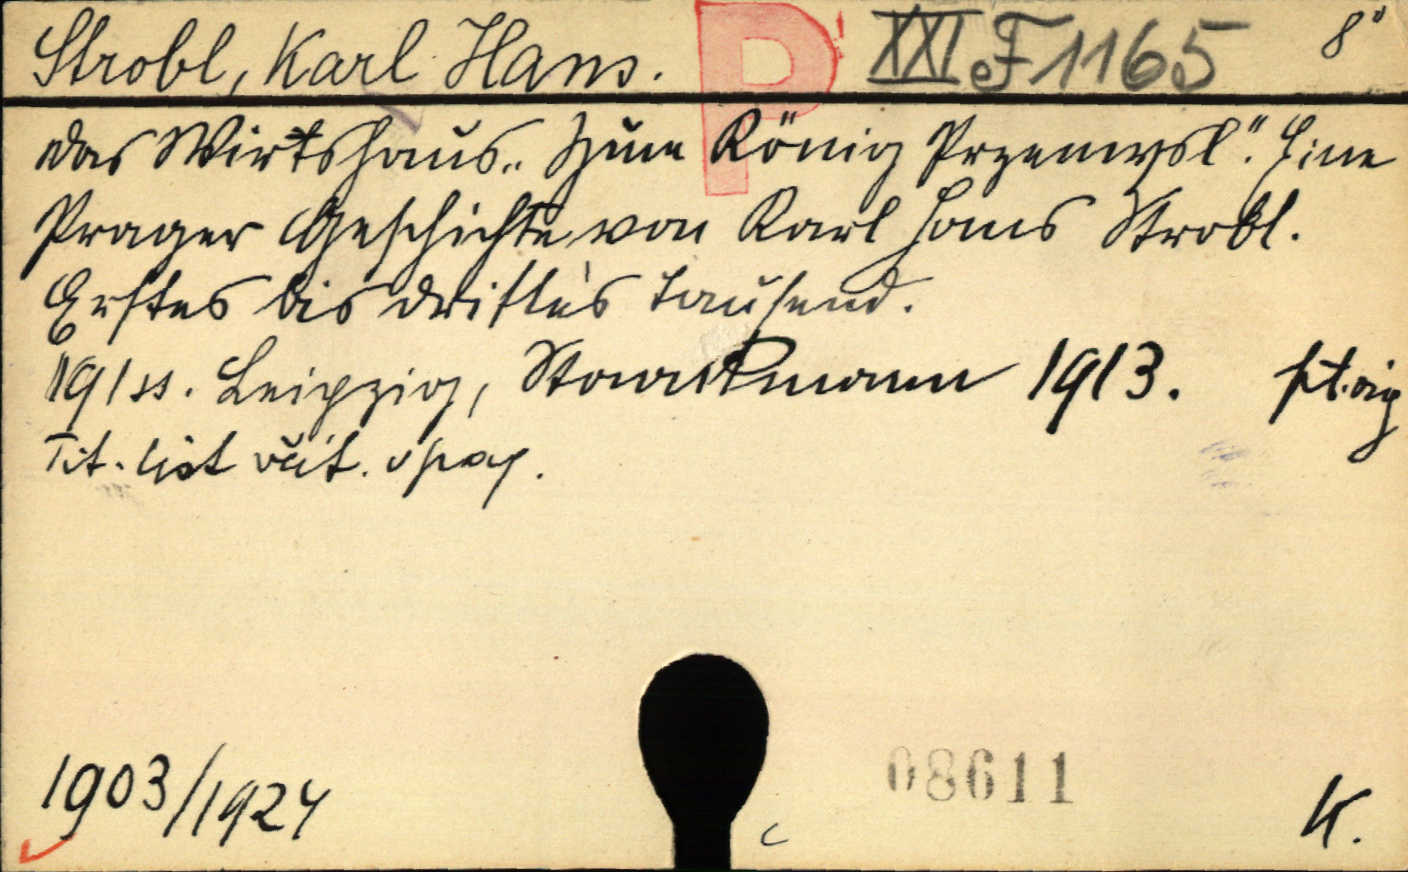 Strobl, Karl Hans. P XXI F 1165 8°
Das Wirtshaus „Zum König Przemysl". Eine
Prager Geschichte von Karl Hans Strobl.
Erstes bis drittes Tausend.
191 ss. Leipzig, Staackmann 1913.
Tit. list včít. v pag.
1903/1924
08611
K.